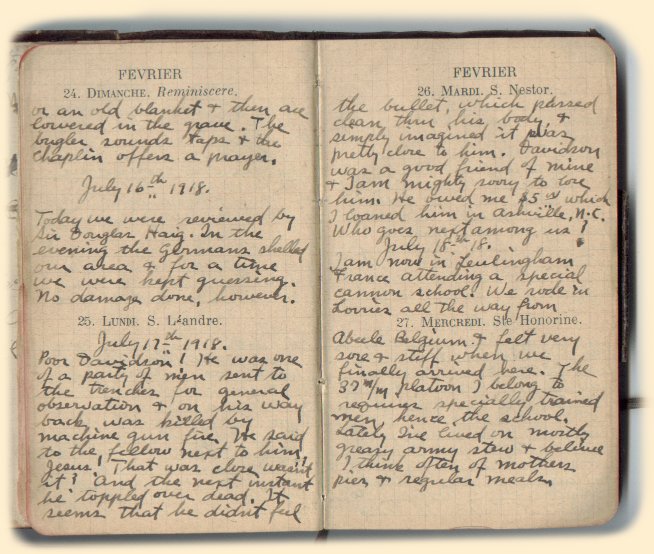 FEVRIER
24. DIMANCHE. Reminiscere.
or an old blanket & then are
lowered in the grave. The
bugler sounds taps & the
chaplin offers a prayer.
July 16th 1918.
Today we were reviewed by
Sir Douglas Haig. In the
evening the Germans shelled
our area & for a time
we were kept guessing.
No damage done, however.
25. LUNDI. S. Léandre.
July 17th 1918.
Poor Davidson! He was one
of a party of men sent to
the trenches for general
observation & on his way
back was killed by
machine gun fire. He said
to the fellow next to him,
"Jesus! That was close wasn't
it? And the next instant
he toppled over dead. It
seems that he didn't feel
FEVRIER
26. MARDI. S. Nestor.
the bullet, which passed
clean thru his body, &
simply imagined it was
pretty close to him. Davidson
was a good friend of mine
& I am mighty sorry to lose
him. He owed me $5.00 which
I loaned him in Ashville, N.C.
Who goes next among us?
July 18th 18.
I am now in Leulingham
France attending a special
cannon school. We rode in
Lorries all the way from
27. MERCREDI. Ste Honorine.
Abeele Belgium & felt very
sore & stiff when we
finally arrived here. The
37 m/m platoon I belong to
requires specially trained
men hence the school.
Lately I've lived on mostly
greasy army stew & believe
I think often of mothers
pies & regular meals.